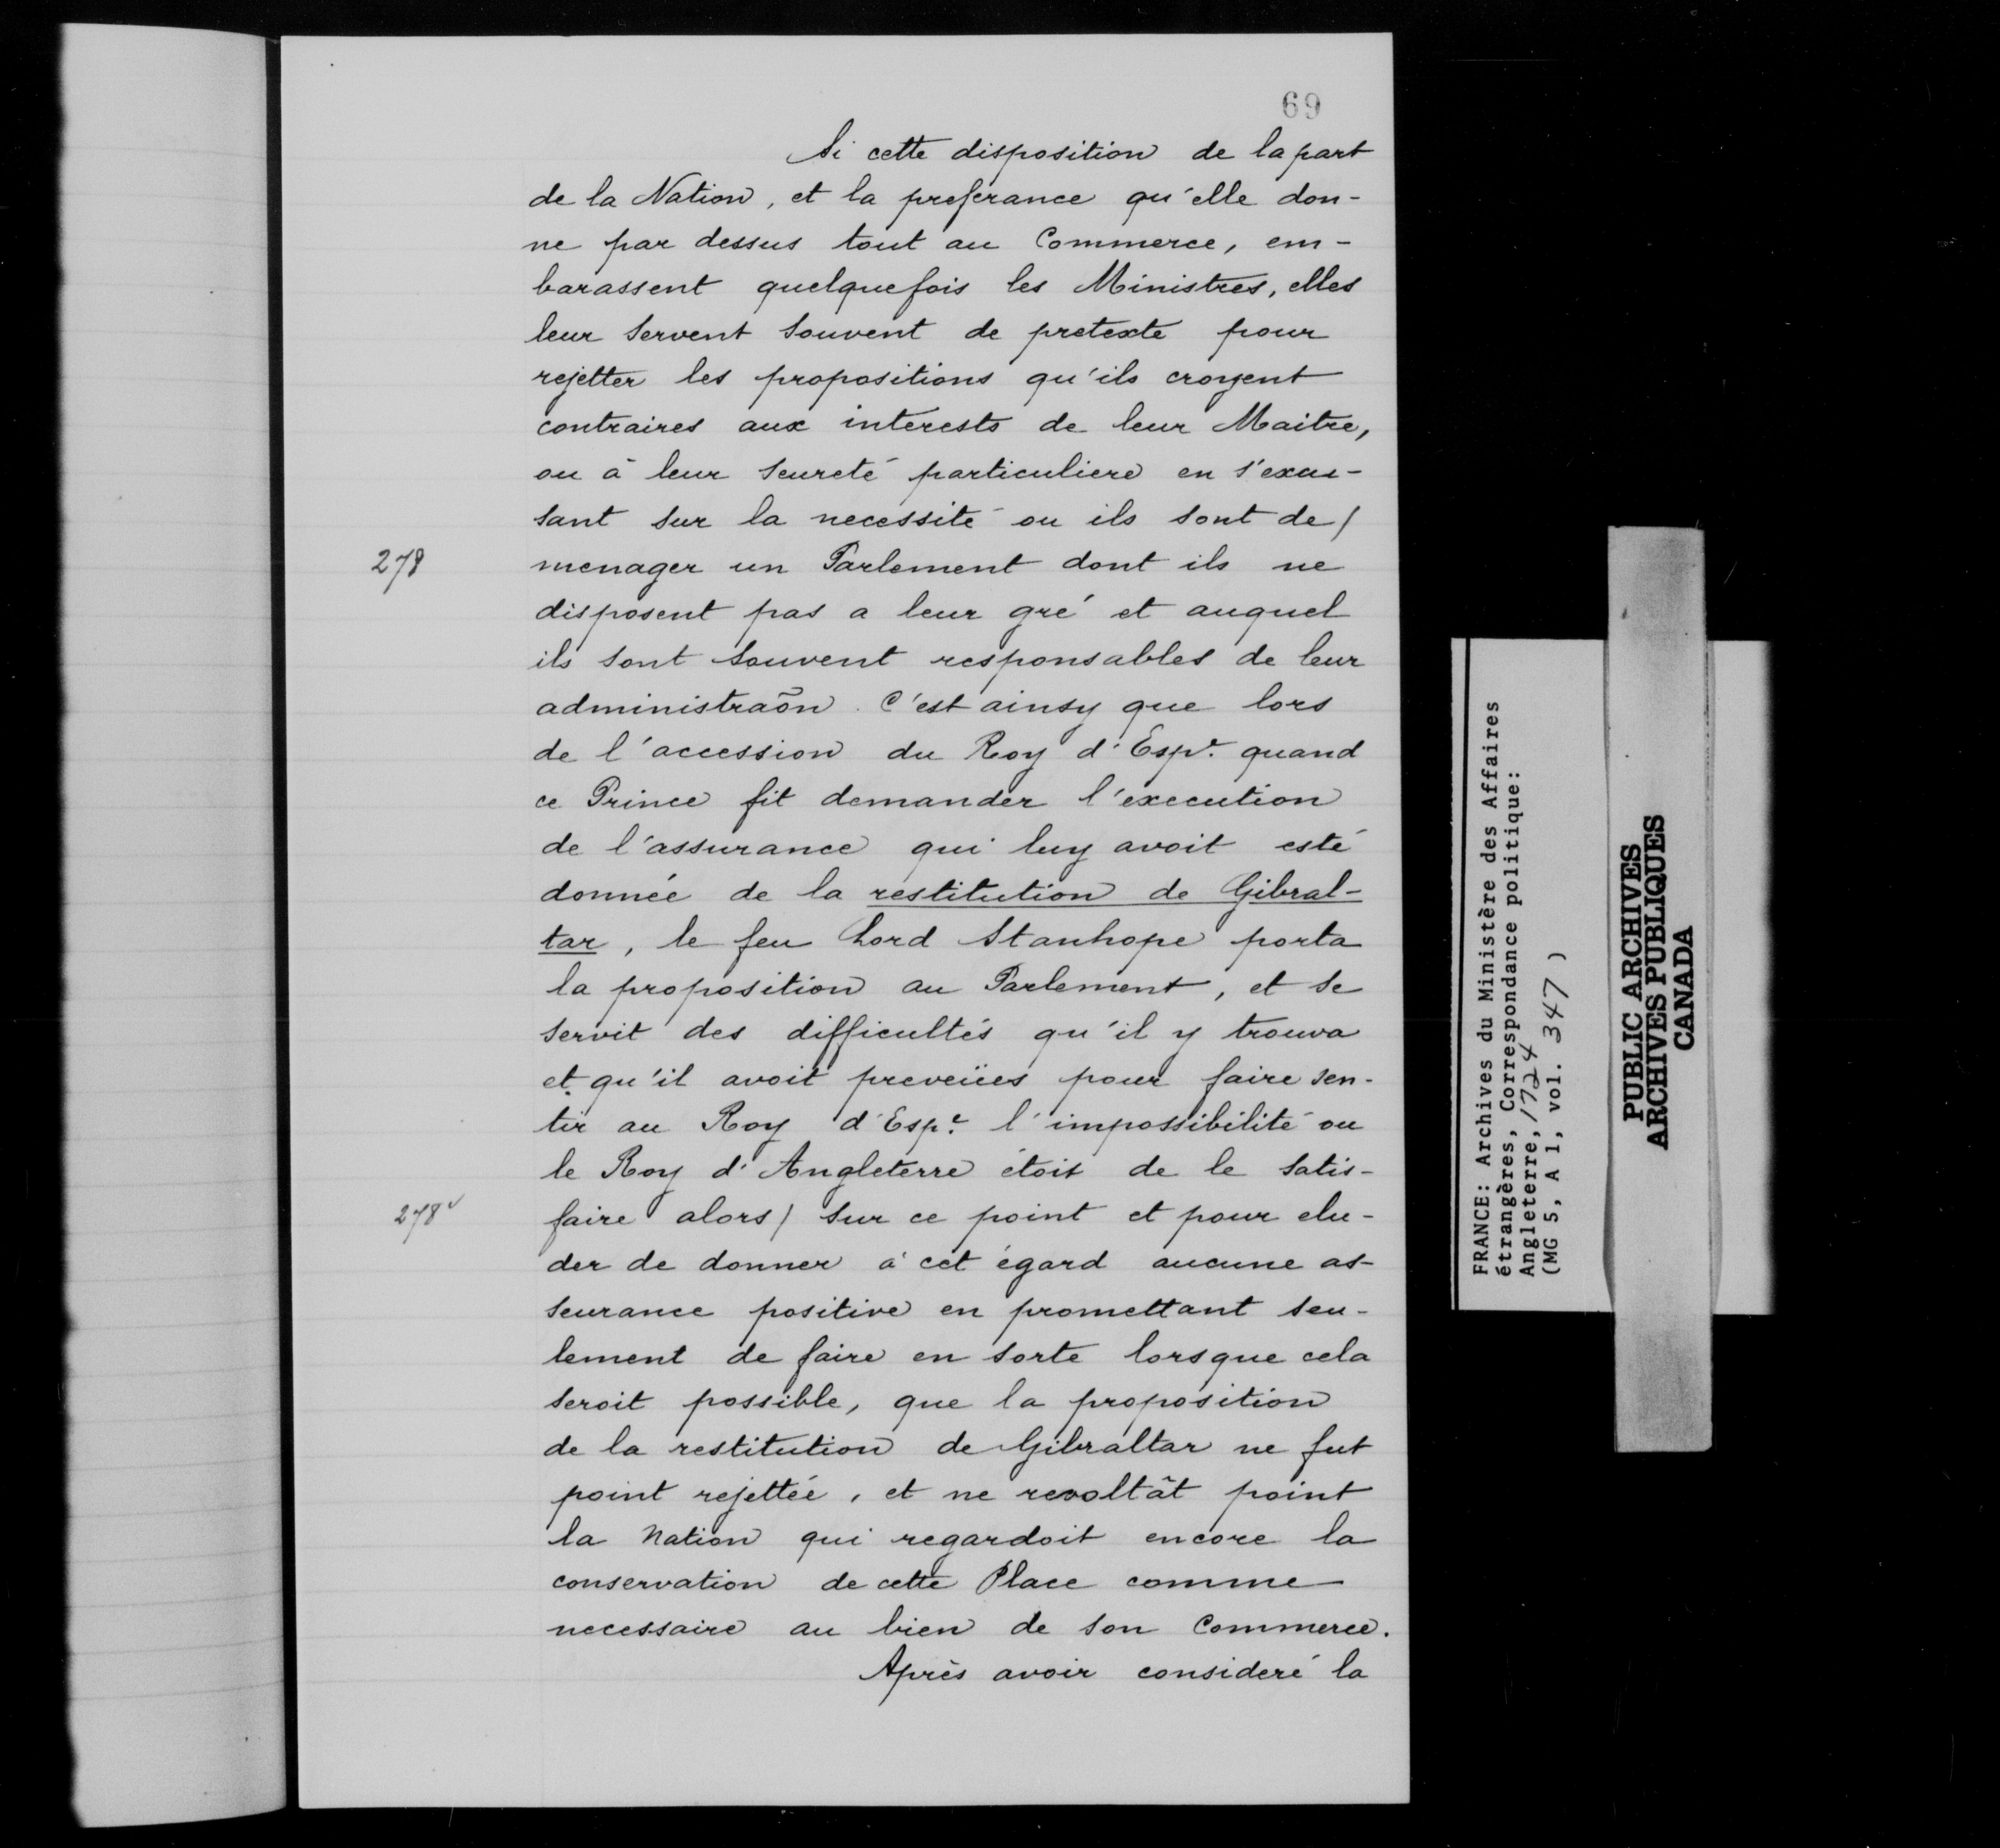 69
Si cette disposition de la part
de la Nation, et la preferance qu'elle don-
ne par dessus tout au Commerce, em-
barassent quelquefois les Ministres, elles
leur servent souvent de pretexte pour
rejetter les propositions qu'ils croyent
contraires aux interests de leur Maitre,
ou à leur seureté particuliere en s'excu-
sant sur la necessité ou ils sont de/
278 menager un Parlement dont ils ne
disposent pas a leur gré et auquel
ils sont souvent responsables de leur
administraõn. C'est ainsy que lors
de l'accession du Roy d'Espe. quand
ce Prince fit demander l'execution
de l'assurance qui luy avoit esté
donnée de la restitution de Gibral-
tar, le feu Lord Stanhope porta
la proposition au Parlement, et se
servit des difficultés qu'il y trouva
et qu'il avoit preveües pour faire sen-
tir au Roy d'Espe. l'impossibilité ou
le Roy d'Angleterre étoit de le satis-
278v faire alors/ sur ce point et pour elu-
der de donner à cet égard aucune as-
seurance positive en promettant seu-
lement de faire en sorte lorsque cela
seroit possible, que la proposition
de la restitution de Gibraltar ne fut
point rejettée, et ne revoltât point
la Nation qui regardoit encore la
conservation de cette Place comme
necessaire au bien de son Commerce.
Après avoir consideré la
FRANCE: Archives du Ministère des Affaires
étrangères, Correspondance politique:
Angleterre, 1724
(MG 5, A 1, vol. 347)
PUBLIC ARCHIVES
ARCHIVES PUBLIQUES
CANADA